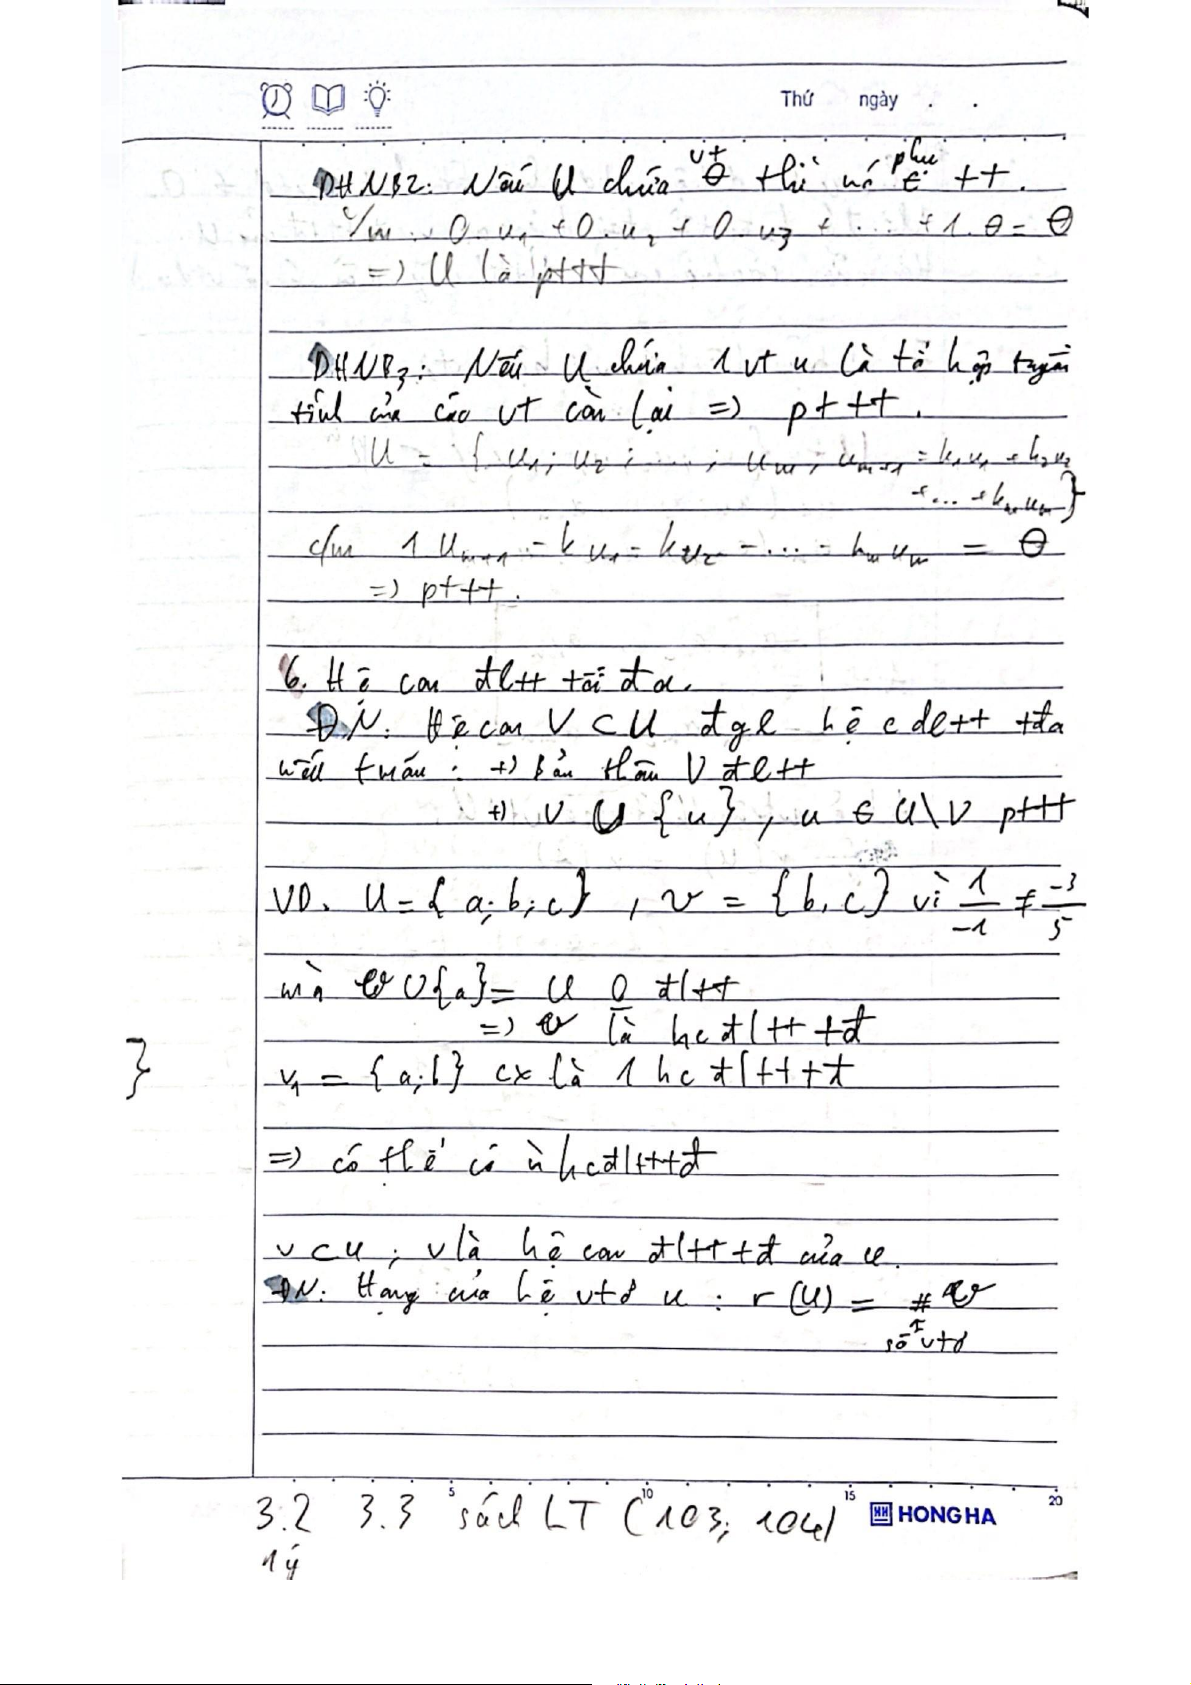 Thứ ngày . .
vt phụ
DHNB2: Nếu U chứa θ thì nó t² tt.
C/m: 0.u₁ + 0.u₂ + 0.u₃ + ... + 1.θ = θ
=> U là pttt
DHNB3: Nếu U chứa 1 vt u là tổ hợp tuyến
tính của các vt còn lại => pttt.
U = { u₁; u₂; ...; uₘ; uₘ₊₁ = k₁u₁ + k₂u₂
+ ... + kₘuₘ}
c/m 1 uₘ₊₁ - k u₁ - k₂u₂ - ... - kₘuₘ = θ
=> pttt.
6. Hệ con đltt tối đa.
ĐN: Hệ con V ⊂ U đgl hệ c đltt tđa
nếu t mãn: +) Bản thân V đltt
+) V ∪ {u}, u ∈ U\V pttt
VD. U = {a; b; c}, V = {b, c} vì 1/-1 ≠ -3/5
mà V ∪ {a} = U 0 đltt
=> V là hc đltt tđ
}
V₁ = {a; b} cx là 1 hc đltt tđ
=> có thể có ù hcđltttđ
V ⊂ U; V là hệ con đltt tđ của U.
ĐN: Hạng của hệ vtơ U: r(U) = # V
số vtơ
5 10 15 20
3.2 3.3 sách LT (103; 104)
HONG HA
1 ý